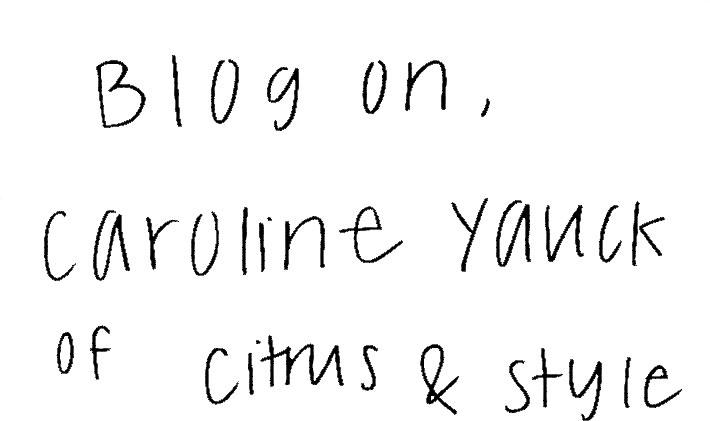 Blog on,
Caroline Yauck
of Citrus & Style